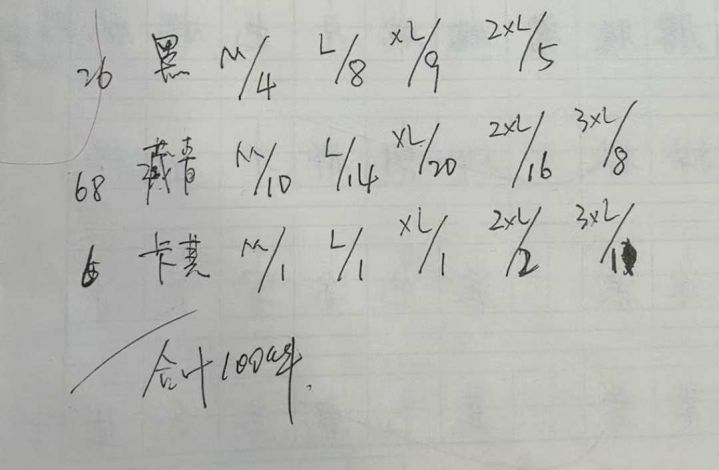 26 黑 M/4 L/8 XL/9 2XL/5
68 藏青 M/10 L/14 XL/20 2XL/16 3XL/8
6 卡其 M/1 L/1 XL/1 2XL/2 3XL/1
合计100件.